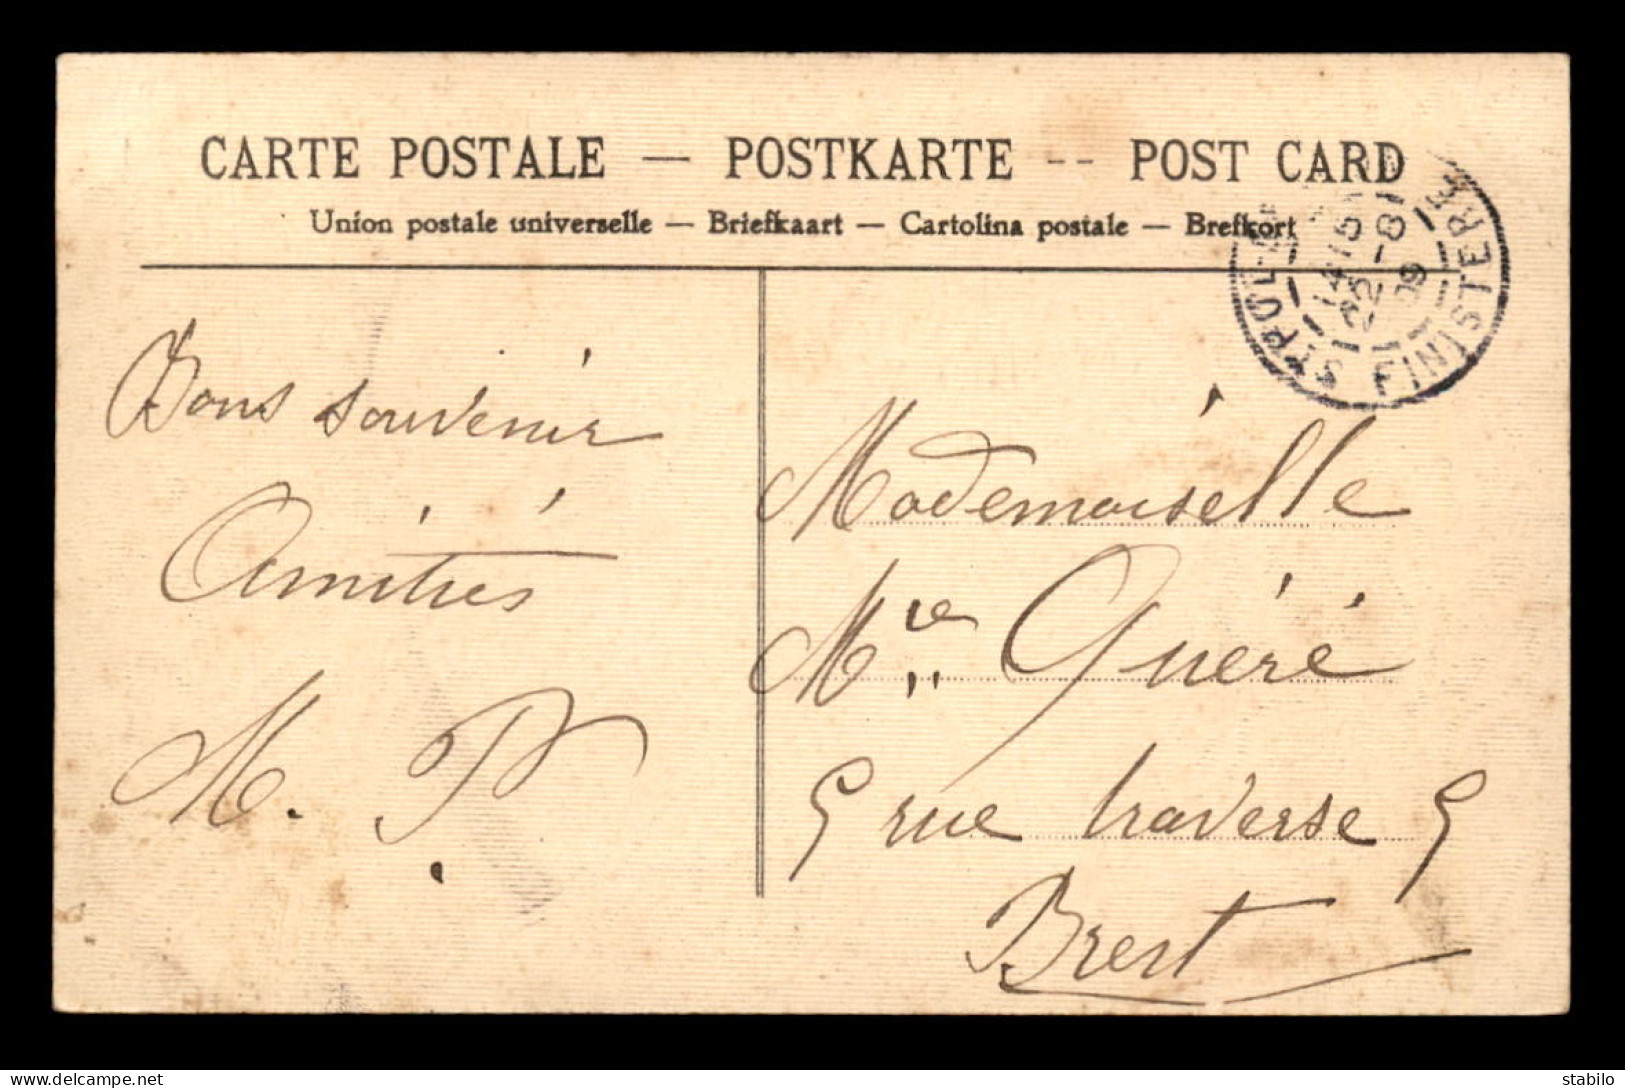 CARTE POSTALE — POSTKARTE -- POST CARD
Union postale universelle — Briefkaart — Cartolina postale — Brefkort
ST POL-DE
FINISTERE
14 15
22 -8
09
Bons souvenir
Amitiés
M. P.
Mademoiselle
Mie Quéré
5 rue traverse 5
Brest
www.delcampe.net
stabilo